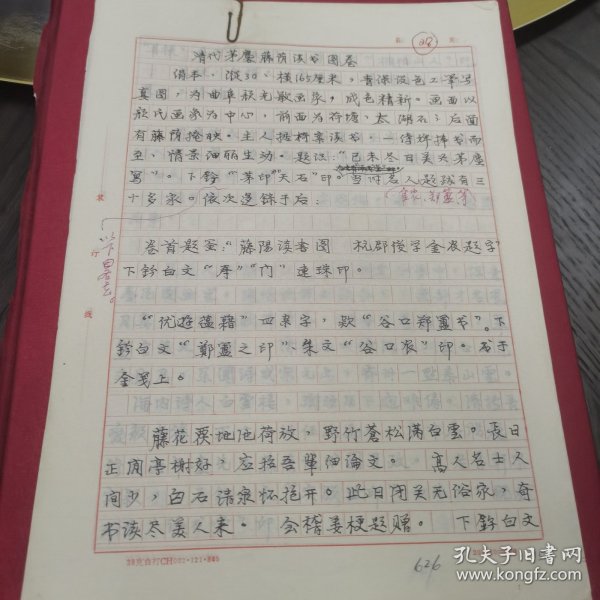 28
清代茅麐藤荫读书图卷
绢本，纵30、横165厘米，青绿设色工笔写
真图，为曲阜颜光敏画象，成色精新。画面以
颜氏画象为中心，前面为荷塘，太湖石；后面
有藤荫掩映。主人据案读书，一侍婢捧书而
至，情景细丽生动。题识："己未冬日吴兴茅麐
写"。下钤"茅印""天石"印。当时名人题跋有三
十多家。依次选录于后：
卷首题签："藤阴读书图 杭郡后学金农题字"
下钤白文"寿""门"连珠印。
"优游蕴籍"四隶字，款"谷口郑簠书"。下
钤白文"郑簠之印"朱文"谷口农"印。书于
金笺上。
藤花覆地池荷放，野竹苍松满白雲。長日
正闲亭榭好，应招吾辈细论文。 高人名士人
间少，白石清泉怀抱开。此日闭关无俗家，奇
书读尽美人来。 会稽姜梗题赠。 下钤白文
以下另去。
装
订
线
626
孔夫子旧书网
www.kongfz.com